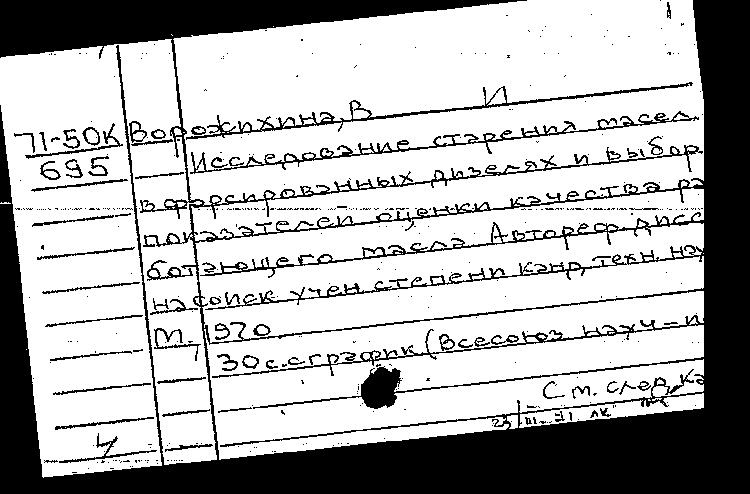 71-50К Ворожихина, В И
695 Исследование старения масел
в форсированных дизелях и выбор
показателей оценки качества ра
ботающего масла Автореф. дисс
на соиск учен степени канд. техн. нау
М., 1970.
30 с. с график (Всесоюз науч-и
См. след. ка
23/III-71 ЛК
Ч